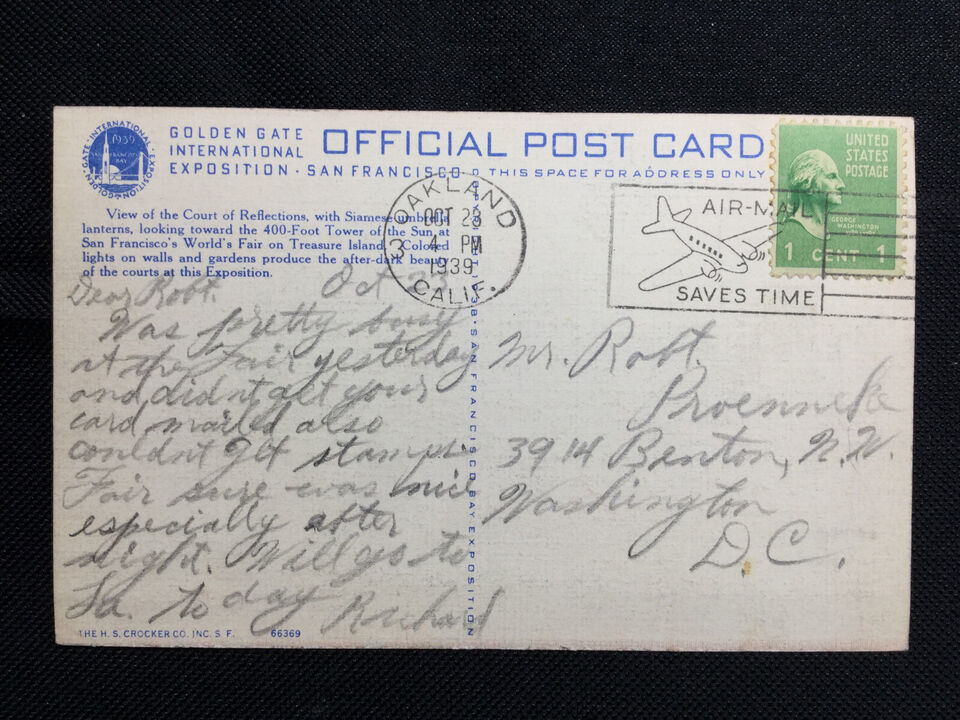 GOLDEN GATE INTERNATIONAL EXPOSITION
1939
SAN FRANCISCO BAY
GOLDEN GATE
INTERNATIONAL
EXPOSITION · SAN FRANCISCO
OFFICIAL POST CARD
THIS SPACE FOR ADDRESS ONLY
View of the Court of Reflections, with Siamese umbrella
lanterns, looking toward the 400-Foot Tower of the Sun at
San Francisco's World's Fair on Treasure Island. Colored
lights on walls and gardens produce the after-dark beauty
of the courts at this Exposition.
OAKLAND
OCT 23
3 4 PM
1939
CALIF.
AIR-MAIL
SAVES TIME
UNITED
STATES
POSTAGE
GEORGE
WASHINGTON
1 CENT 1
Dear Robt. Oct 23
Was pretty busy
at the Fair yesterday
and didnt get your
card mailed also
couldnt get stamps.
Fair sure was nice
especially after
night. Will go to
La. to day Richard
Mr. Robt.
Proenneke
3914 Benton, N.W.
Washington
D.C.
1938 · SAN FRANCISCO BAY EXPOSITION
THE H. S. CROCKER CO. INC. S F. 66369